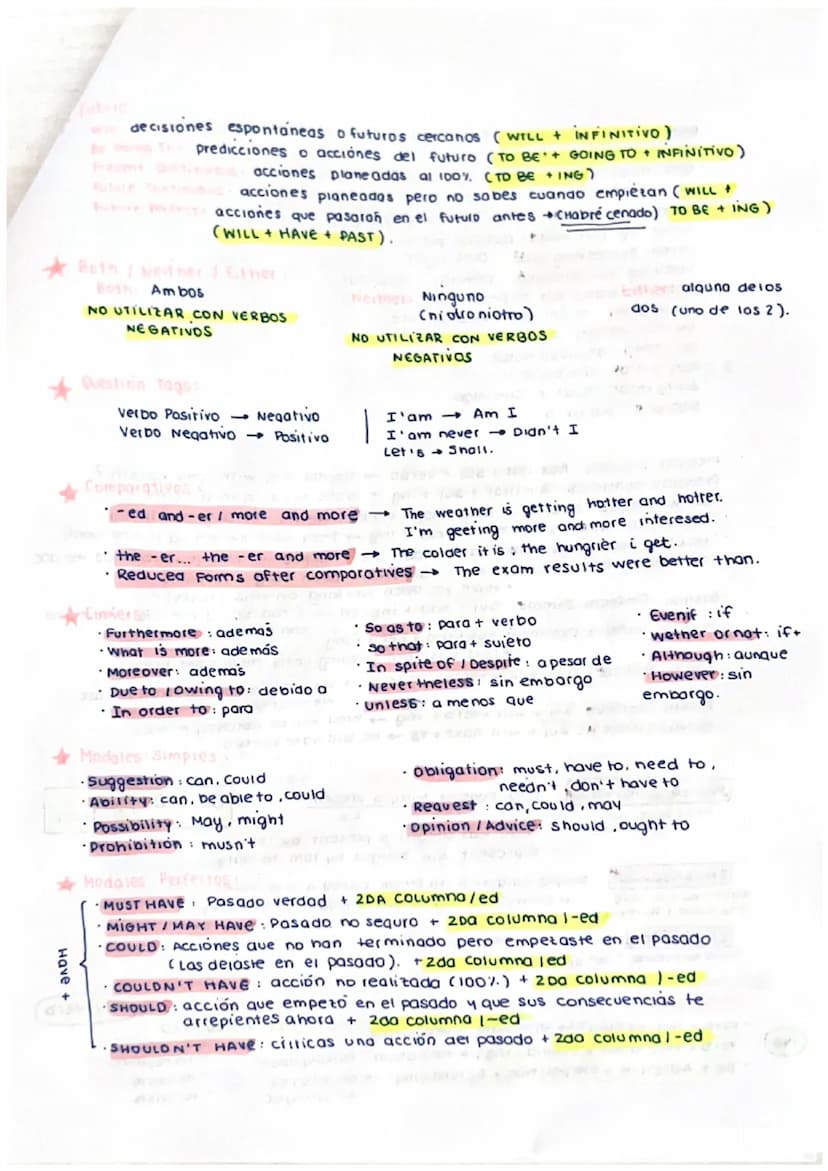 Future
Will: decisiónes espontáneas o futuros cercanos (WILL + INFINITIVO)
Be Going To: predicciones o acciónes del futuro (TO BE + GOING TO + INFINITIVO)
Present Continuous: acciones planeadas al 100% (TO BE + ING)
Future Continuous: acciones planeadas pero no sabes cuando empiezan (WILL +
Future Perfect: acciones que pasarán en el futuro antes → (Habré cenado) TO BE + ING)
(WILL + HAVE + PAST).
Both / Neither / Either
Both: Ambos
NO UTILIZAR CON VERBOS
NEGATIVOS
Neither: Ninguno
(ni otro ni otro)
NO UTILIZAR CON VERBOS
NEGATIVOS
Either: alguna de los
dos (uno de los 2).
Question Tags:
Verbo Positivo → Negativo
Verbo Negativo → Positivo
I'am → Am I
I'am never → Didn't I
Let's → Shall.
Comparativos:
· -ed and -er / more and more → The weather is getting hotter and hotter.
I'm geeting more and more interesed.
· the -er... the -er and more → The colder it is, the hungrier i get.
· Reduced Forms after comparatives → The exam results were better than.
Linkers:
· Furthermore: ademas
· What is more: además
· Moreover: ademas
· Due to / Owing to: debido a
· In order to: para
· So as to: para + verbo
· so that: para + sujeto
· In spite of / Despite: a pesar de
· Nevertheless: sin embargo
· unless: a menos que
· Evenif: if
· wether or not: if+
· Although: aunque
· However: sin
embargo.
Modales Simples:
· Suggestion: can, could
· Ability: can, be able to, could
· Possibility: May, might
· Prohibition: musn't
· Obligation: must, have to, need to,
needn't, don't have to
· Request: can, could, may
· Opinion / Advice: should, ought to
Modales Perfectos:
Have +
· MUST HAVE: Pasado verdad + 2DA COLUMNA/ed
· MIGHT / MAY HAVE: Pasado no seguro + 2DA columna /-ed
· COULD: Acciónes que no han terminado pero empezaste en el pasado
(Las dejaste en el pasado). + 2da columna /ed
· COULDN'T HAVE: acción no realizada (100%) + 2DA columna /-ed
· SHOULD: acción que empezó en el pasado y que sus consecuencias te
arrepientes ahora + 2da columna /-ed
· SHOULDN'T HAVE: críticas una acción del pasado + 2da columna /-ed